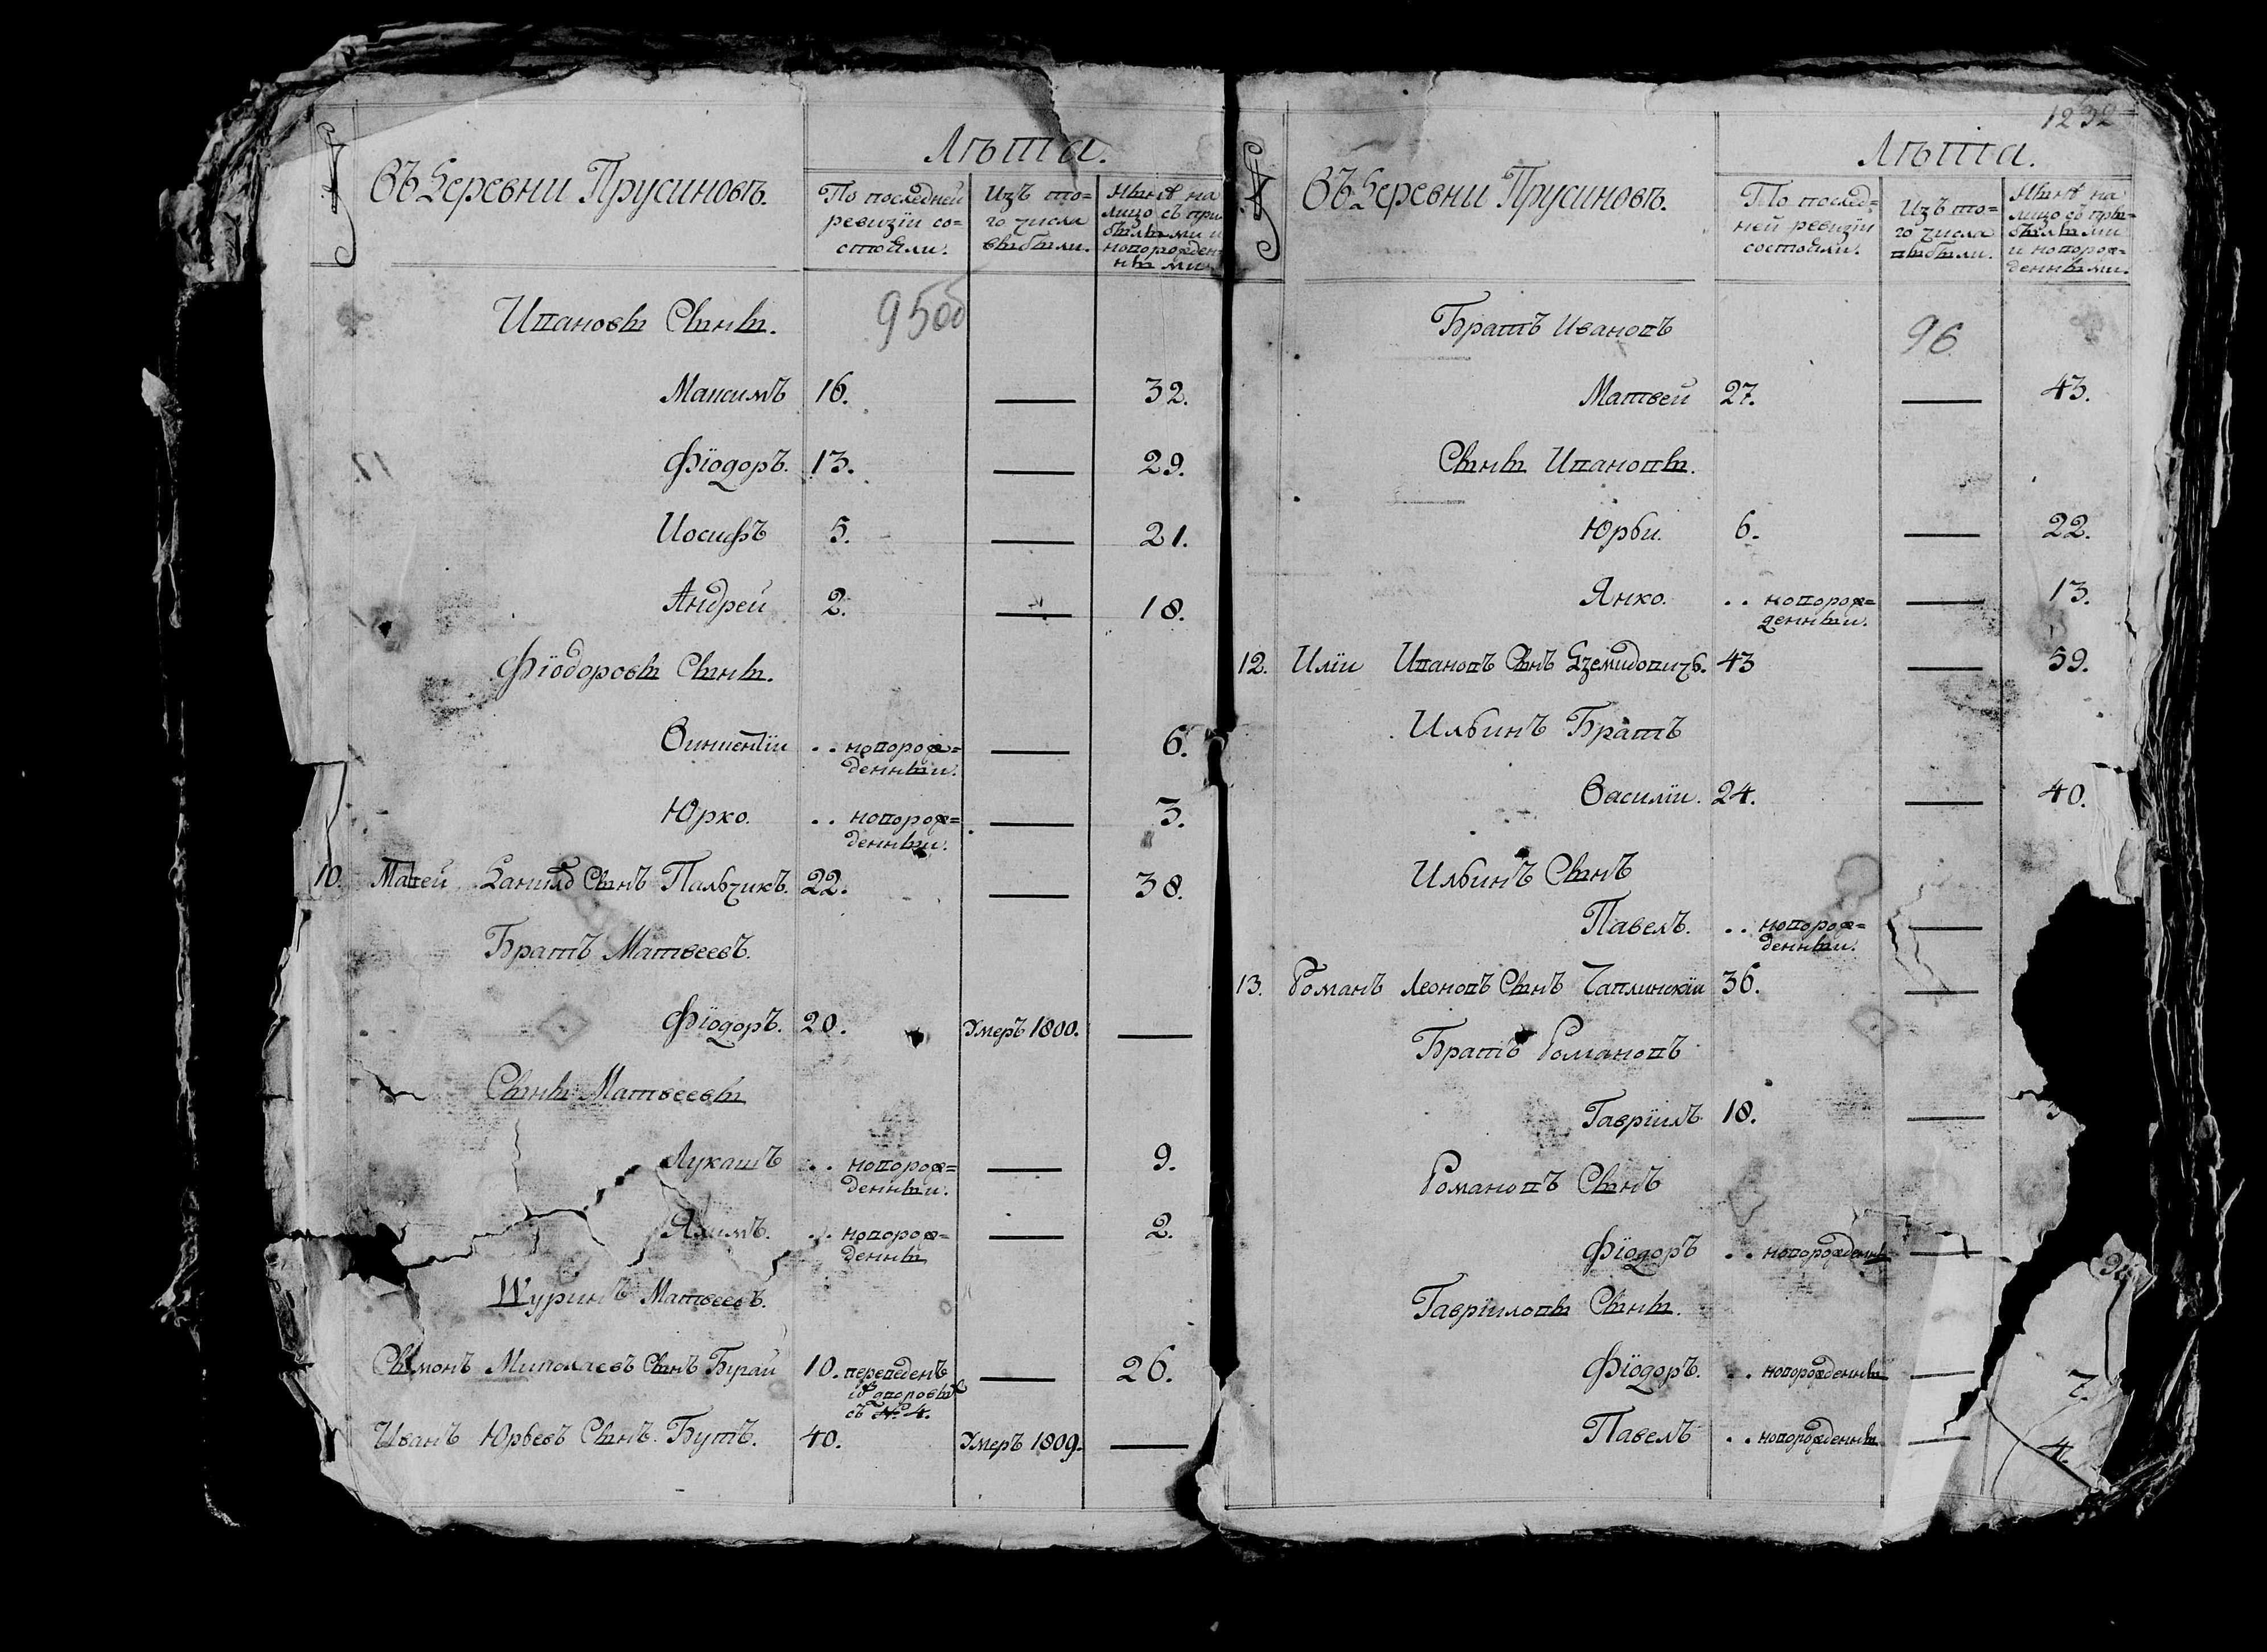 №
Въ Деревни Прусиновѣ.
Лѣта.
По последней
ревизіи со=
стояли.
Изъ то=
го числа
выбыли.
Нынѣ на
лицо съ при
былыми и
новорожден
ными
Ивановы Сыны.
95об
Максимъ 16. — 32.
Фіодоръ. 13. — 29.
Иосифъ 5. — 21.
Андрей 2. — 18.
Фіодоровы Сыны.
Винцентіи .. новорож= — 6.
денныи.
Юрко. .. новорож= — 3.
денныи.
10. Матей Данилъ Сынъ Пальчикъ. 22. — 38.
Братъ Матвеевъ.
Фіодоръ. 20. Умеръ 1800. —
Сыны Матвеевы
Лукашъ .. новорож= — 9.
денныи.
Якимъ. .. новорож= — 2.
денны
Шуринъ Матвеевъ.
Сымонъ Миколаевъ Сынъ 10. переведенъ — 26.
съ № 4.
Иванъ Юрьевъ Сынъ Бутъ. 40. Умеръ 1809. —
1232
№
Въ Деревни Прусиновѣ.
Лѣта.
По послед=
ней ревизіи
состояли.
Изъ то=
го числа
выбыли.
Нынѣ на
лицо съ при=
былыми
и новорож=
денными.
Братъ Ивановъ
96
Матвей 27. — 43.
Сыны Ивановы.
Юрьи. 6. — 22.
Янко. .. новорож= — 13.
денныи.
12. Иліи Ивановъ Сынъ Дземидовичь. 43 — 59.
Ильинъ Братъ
Василіи. 24. — 40.
Ильинъ Сынъ
Павелъ. .. новорож= —
денныи.
13. Романъ Леоновъ Сынъ Чаплинскіи 36. —
Братъ Романовъ
Гавріилъ 18. — 3
Романовъ Сынъ
Фіодоръ .. новорожденны —
Гавріиловы Сыны.
Фіодоръ. .. новорожденны — 7.
Павелъ .. новорожденны — 4.